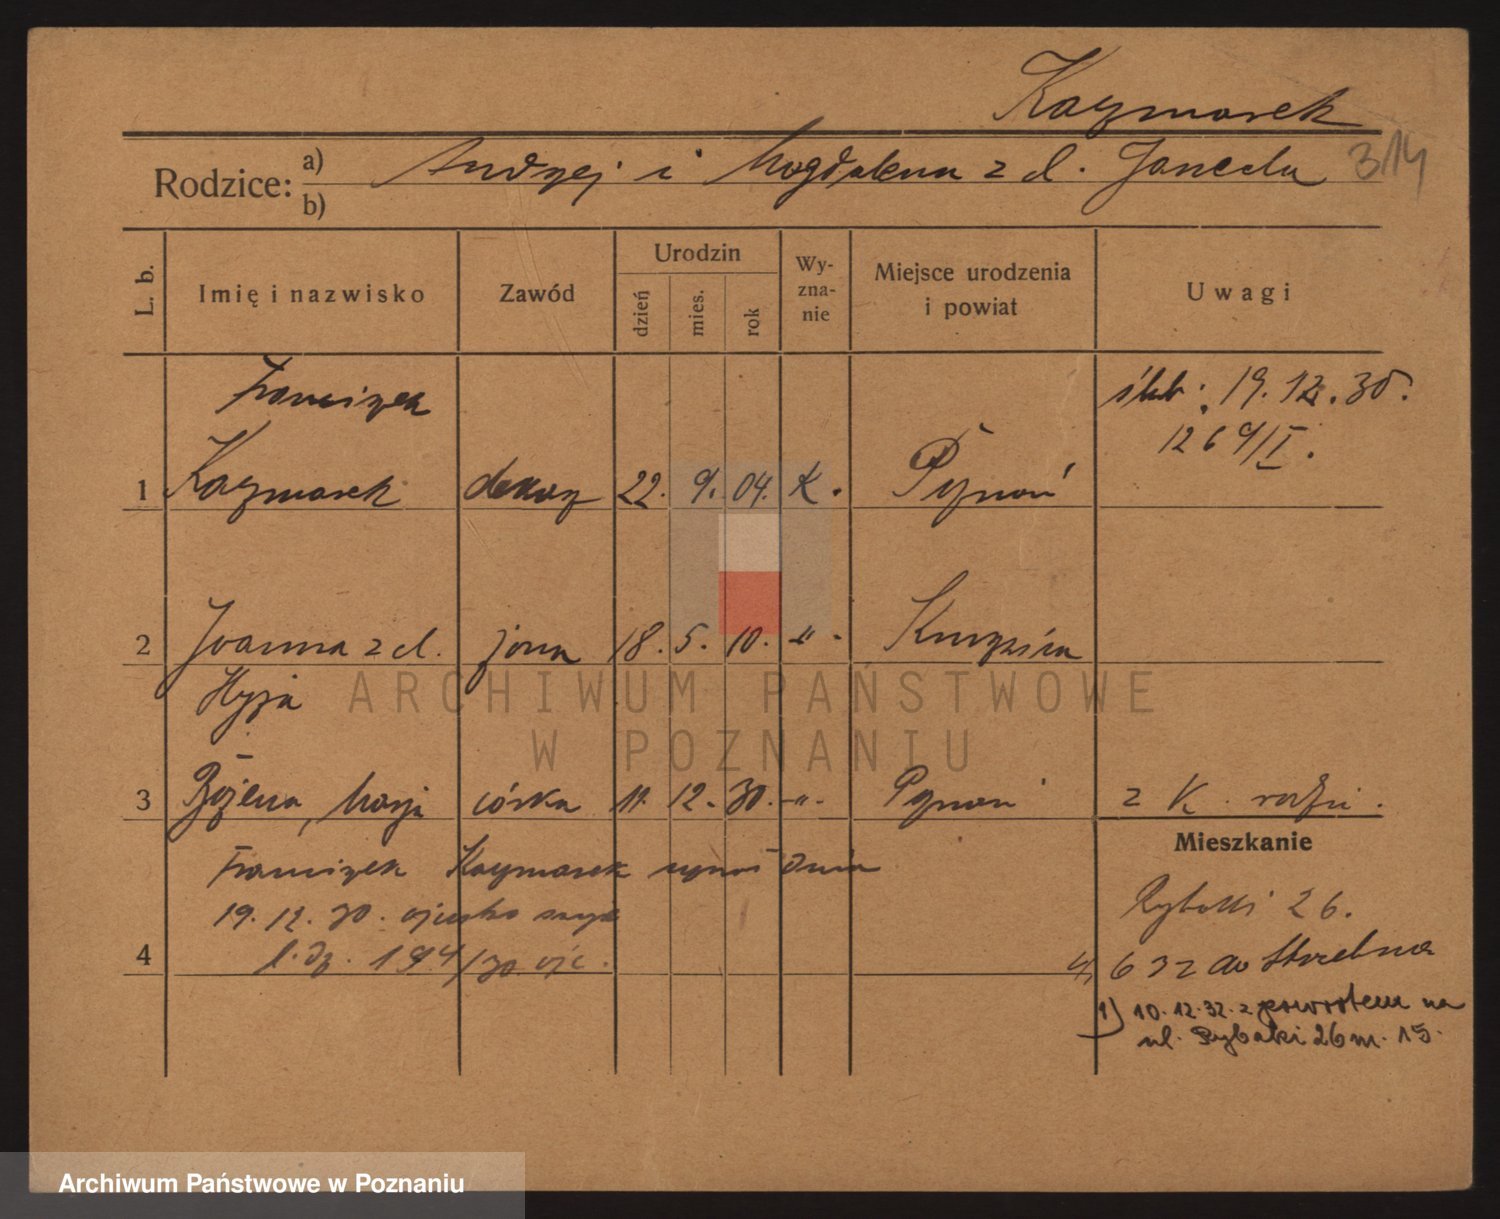 Kaczmarek
314
Rodzice: a) Andrzej i Magdalena z d.
b)
L. b.
Imię i nazwisko
Zawód
Urodzin
dzień
mies.
rok
Wy-
zna-
nie
Miejsce urodzenia
i powiat
Uwagi
Franciszek
ślub: 19. 12. 30.
1 Kaczmarek 22. 9. 04. K.
2 Joanna z d. żona 18. 5. 10. -"-
Hyża
3 Bożena, Marja córka 11. 12. 30. -"- z K. rodzi.
Mieszkanie
Franciszek Kaczmarek dnia
19. 12. 30.
Rybaki 26.
4
4/6 32 do Strzelna
1) 10.12.32. z powrotem na
ul. Rybaki 26 m. 15.
ARCHIWUM PAŃSTWOWE
W POZNANIU
Archiwum Państwowe w Poznaniu